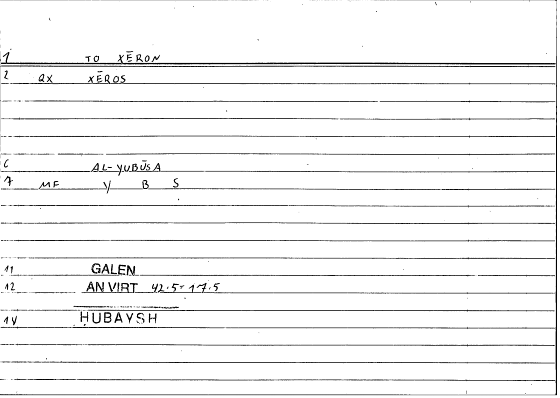 1 TO XĒRON
2 QX XĒROS
6 AL-YUBŪSA
7 MF Y B S
11 GALEN
12 AN VIRT 42.5-17.5
14 ḤUBAYSH